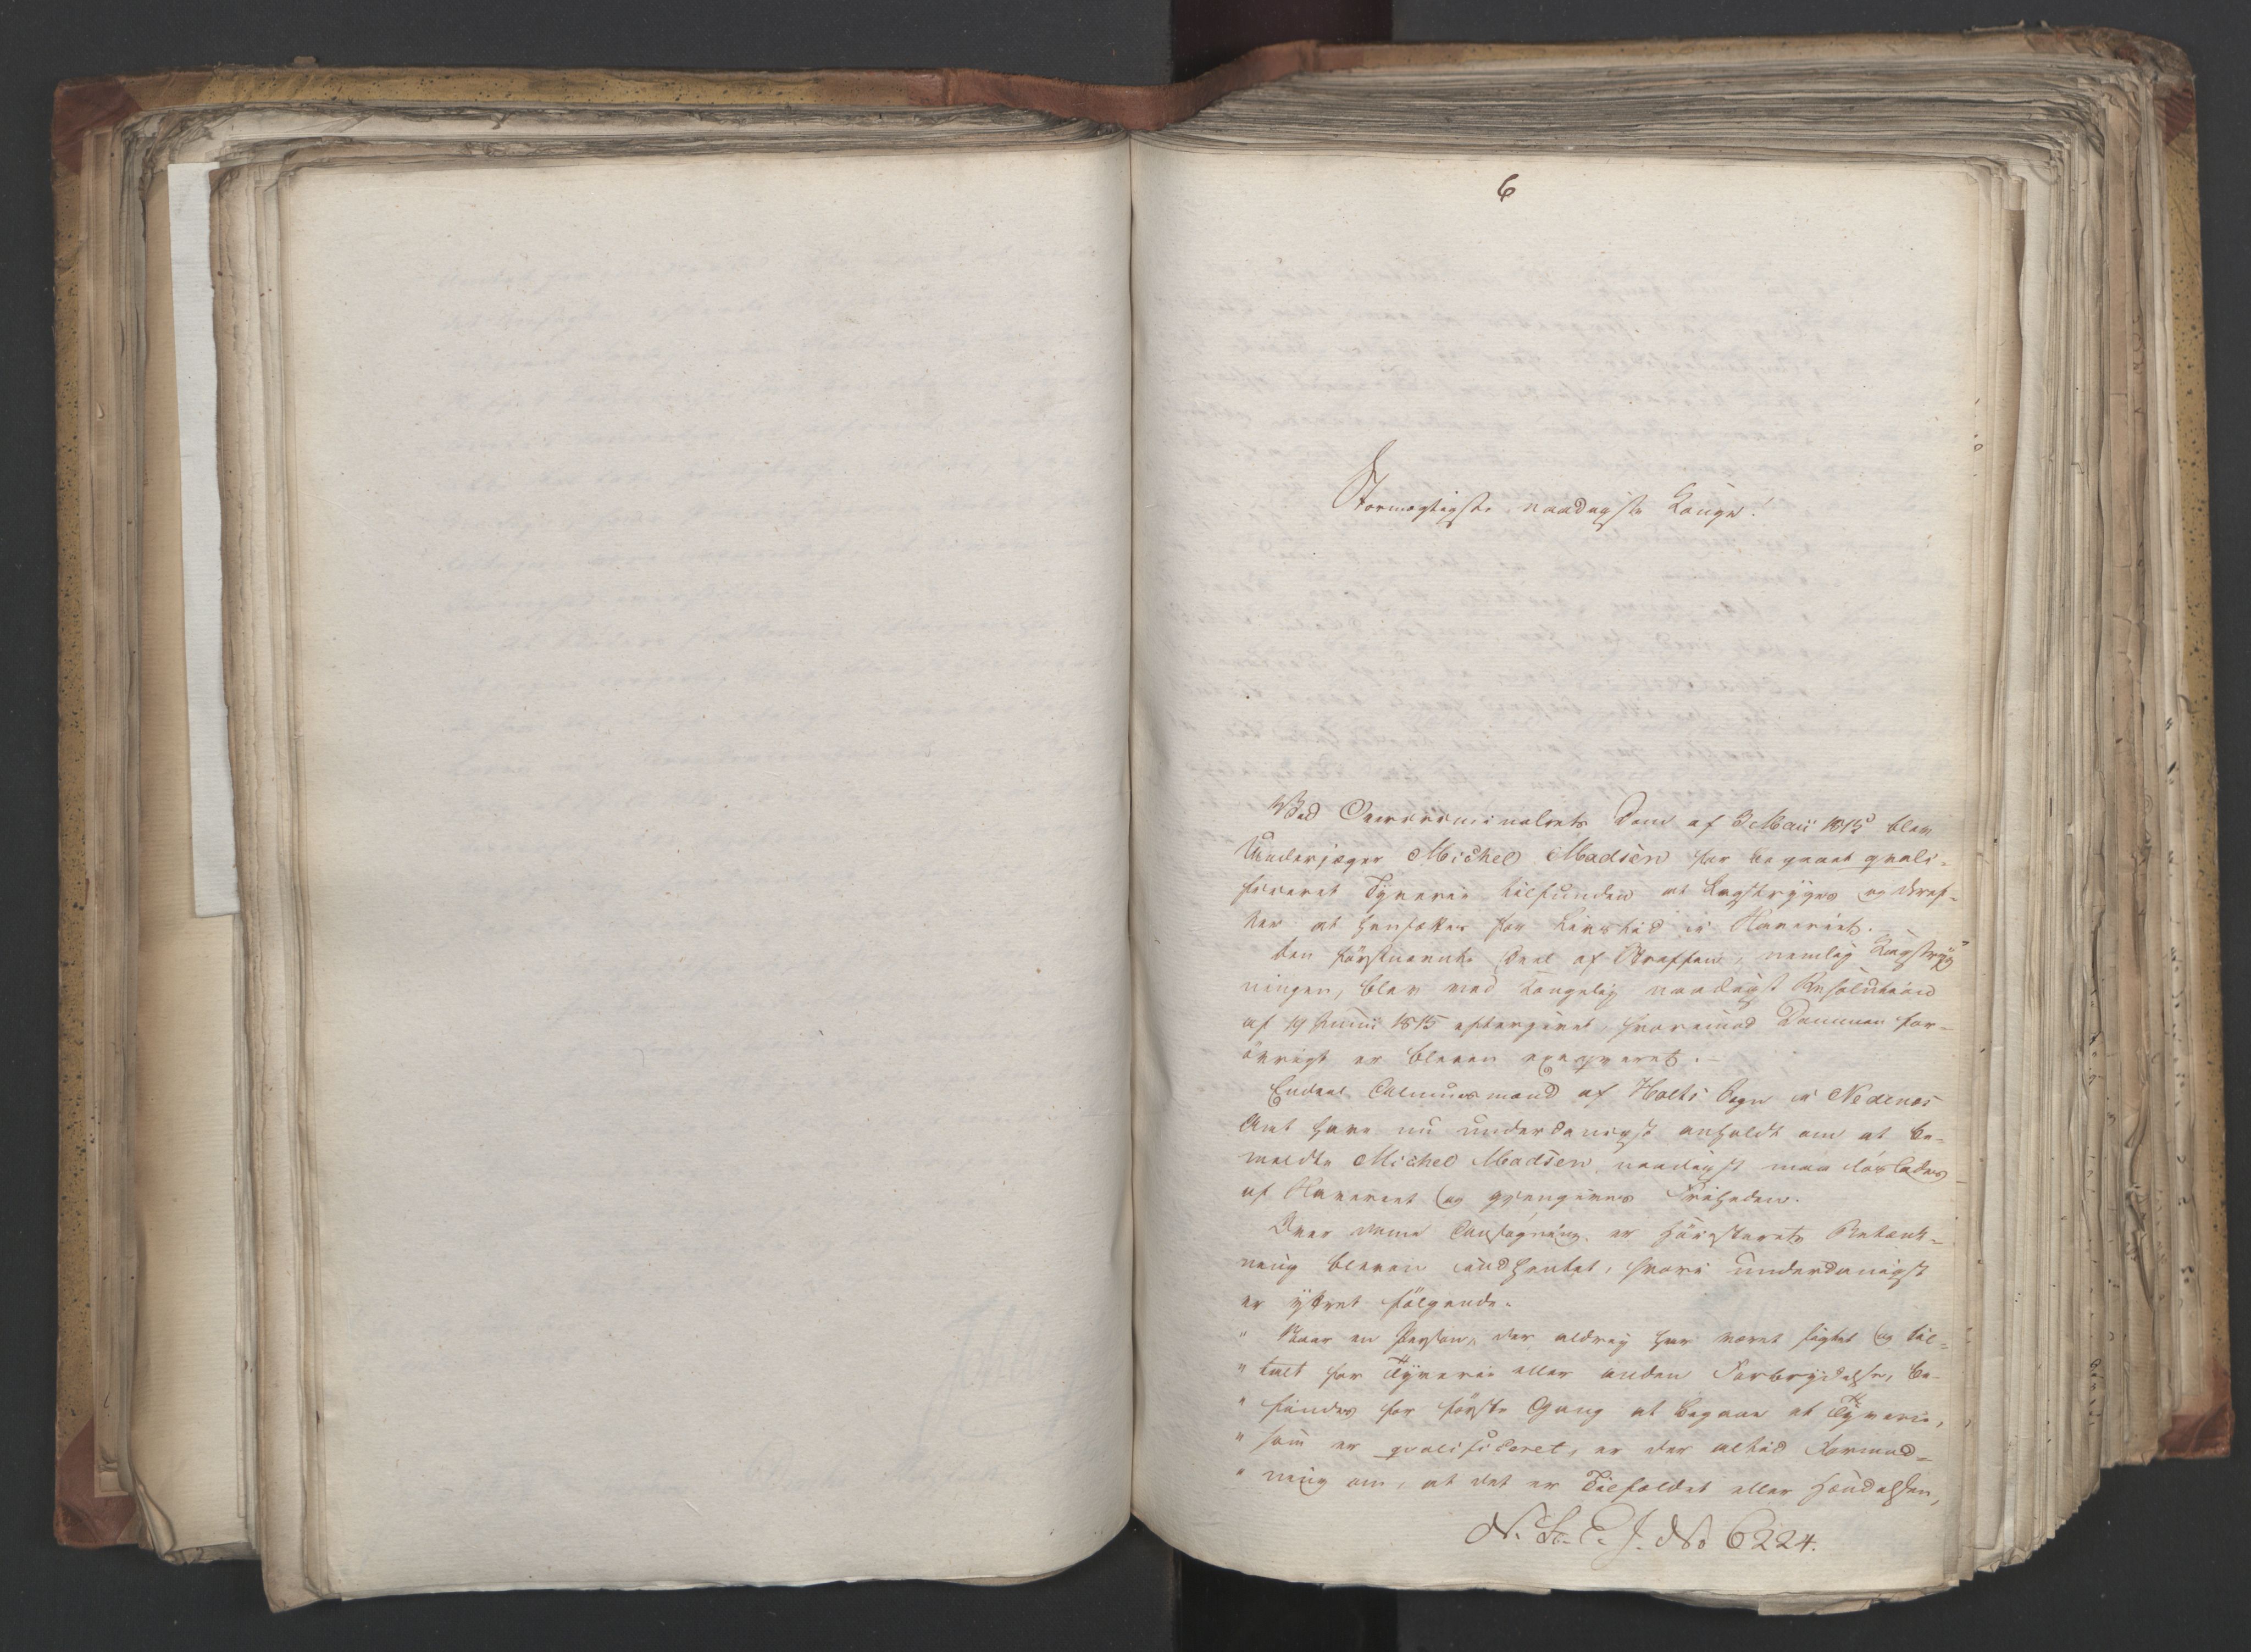 6
Stormægtigste naadigste Konge!
Ved Overcriminalrets Dom af 3 Maii 1815 blev
Underjæger Michel Madsen for begaaet qvali-
ficeret Tyverie tilfunden at Kagstryges og deref-
ter at hensættes for Livstid i Slaveriet.
Den førstnævnte Deel af Straffen, nemlig Kagstryg-
ningen, blev ved Kongelig naadigst Resolution
af 19 Junii 1815 eftergivet, hvorimod Dommen for-
øvrigt er bleven exeqveret.-
Endeel Almuesmænd af Holts Sogn i Nedenes
Amt have nu underdanigst anholdt om at be-
meldte Michel Madsen naadigst maa løslades
af Slaveriet og gjengives Friheden.
Over denne Ansøgning er Höiesterets Betænk-
ning bleven indhentet, hvori underdanigst
er yttret følgende.
" Naar en Person, der aldrig har været sigtet og til-
" talt for Tyverie eller anden Forbrydelse, be-
" findes for første Gang at begaae et Tyverie,
" som er qvalificeret, er der altid Formod-
" ning om, at det er Tilfældet eller Hændelsen,
N. St. C. J. No 6224.